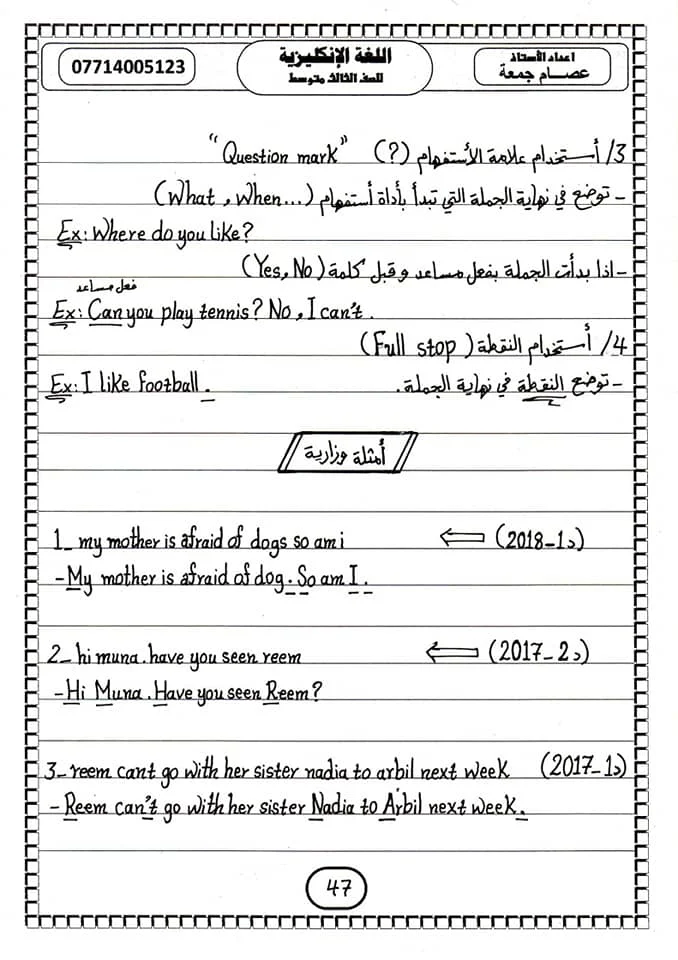 اعداد الأستاذ
عصام جمعة
اللغة الإنكليزية
للصف الثالث متوسط
07714005123
3/ أستخدام علامة الأستفهام (?) "Question mark"
- توضع في نهاية الجملة التي تبدأ بأداة أستفهام (What , When...)
Ex: Where do you like?
- اذا بدأت الجملة بفعل مساعد وقبل كلمة (Yes, No)
فعل مساعد
Ex: Can you play tennis? No, I can't.
4/ أستخدام النقطة (Full stop)
- توضع النقطة في نهاية الجملة. Ex: I like football.
أمثلة وزارية
1_ my mother is afraid of dogs so am i (2018_1د)
- My mother is afraid of dog. So am I.
2_ hi muna. have you seen reem (2017_2د)
- Hi Muna. Have you seen Reem?
3_ reem cant go with her sister nadia to arbil next week (2017_1د)
- Reem can't go with her sister Nadia to Arbil next week.
47